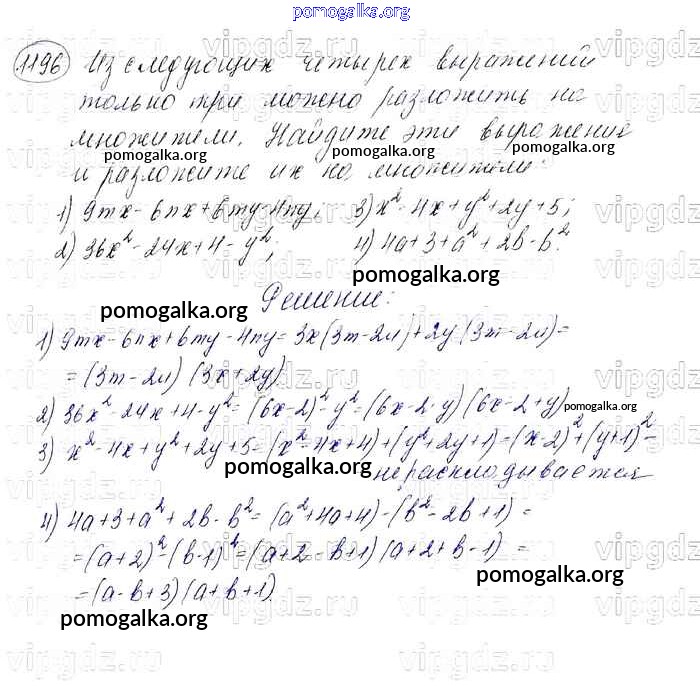 pomogalka.org
1196 Из следующих четырех выражений
только три можно разложить на
множители. Найдите эти выражения
pomogalka.org pomogalka.org
и разложите их на множители:
1) 9mx-6nx+6my-4ny; 3) x²-4x+y²+2y+5;
2) 36x²-24x+4-y²; 4) 4a+3+a²+2b-b².
pomogalka.org
Решение:
pomogalka.org
1) 9mx-6nx+6my-4ny=3x(3m-2n)+2y(3m-2n)=
=(3m-2n)(3x+2y)
pomogalka.org
2) 36x²-24x+4-y²=(6x-2)²-y²=(6x-2-y)(6x-2+y)
pomogalka.org
3) x²-4x+y²+2y+5=(x²-4x+4)+(y²+2y+1)=(x-2)²+(y+1)²-
pomogalka.org нераскладывается
4) 4a+3+a²+2b-b²=(a²+4a+4)-(b²-2b+1)=
=(a+2)²-(b-1)²=(a+2-b+1)(a+2+b-1)=
pomogalka.org
=(a-b+3)(a+b+1).
pomogalka.org